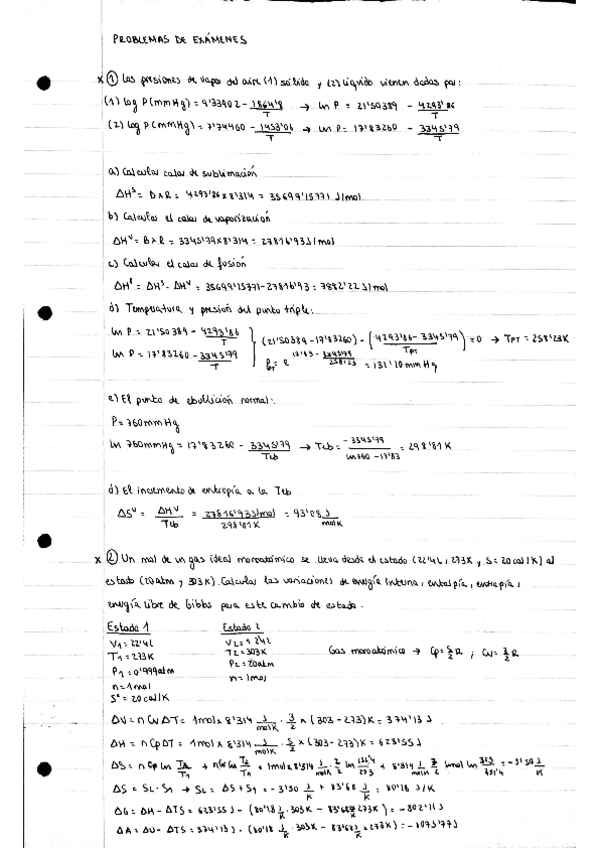 PROBLEMAS DE EXÁMENES
x ① Las presiones de vapor del aire (1) sólido y (2) líquido vienen dadas por:
(1) log P (mmHg) = 9'33902 - 1864'8/T → ln P = 21'50389 - 4293'86/T
(2) log P (mmHg) = 7'74460 - 1453'06/T → ln P = 17'83260 - 3345'79/T
a) Calcular calor de sublimación
ΔHˢ = B x R = 4293'86 x 8'314 = 35699'15771 J/mol
b) Calcular el calor de vaporización
ΔHᵛ = B x R = 3345'79 x 8'314 = 27816'93 J/mol
c) Calcular el calor de fusión
ΔHᶠ = ΔHˢ - ΔHᵛ = 35699'15771 - 27816'93 = 7882'22 J/mol
d) Temperatura y presión del punto triple:
ln P = 21'50389 - 4293'86/T
ln P = 17'83260 - 3345'79/T
(21'50389 - 17'83260) - (4293'86 - 3345'79)/TPT = 0 → TPT = 258'23K
= 131'10 mmHg
e) El punto de ebullición normal:
P = 760 mmHg
ln 760 mmHg = 17'83260 - 3345'79/Teb → Teb = -3345'79/(ln 760 - 17'83) = 298'81 K
d) El incremento de entropía a la Teb
ΔSᵛ = ΔHᵛ/Teb = 27816'93 J/mol / 298'81 K = 93'08 J/molK
x ② Un mol de un gas ideal monoatómico se lleva desde el estado (22'4L, 273K y S = 20 cal/K) al
estado (20 atm y 303K). Calcular las variaciones de energía interna, entalpía, entropía,
energía libre de Gibbs para este cambio de estado.
Estado 1 Estado 2
V₁ = 22'4L V₂ = 1'24L
T₁ = 273K T₂ = 303K Gas monoatómico → Cp = 5/2 R ; Cv = 3/2 R
P₁ = 0'999 atm P₂ = 20 atm
n = 1 mol n = 1 mol
Sº = 20 cal/K
ΔU = n Cv ΔT = 1 mol x 8'314 J/molK · 3/2 x (303 - 273)K = 374'13 J
ΔH = n Cp ΔT = 1 mol x 8'314 J/molK · 5/2 x (303 - 273)K = 623'55 J
ΔS = n Cp ln
ΔS = S₂ - S₁ → S₂ = ΔS + S₁ = -3'50 J/K + 83'68 J/K = 80'18 J/K
ΔG = ΔH - ΔTS = 623'55 J - (80'18 J/K · 303K - 83'68 J/K x 273K) = -802'11 J
ΔA = ΔU - ΔTS = 374'13 J - (80'18 J/K · 303K - 83'68 J/K x 273K) =